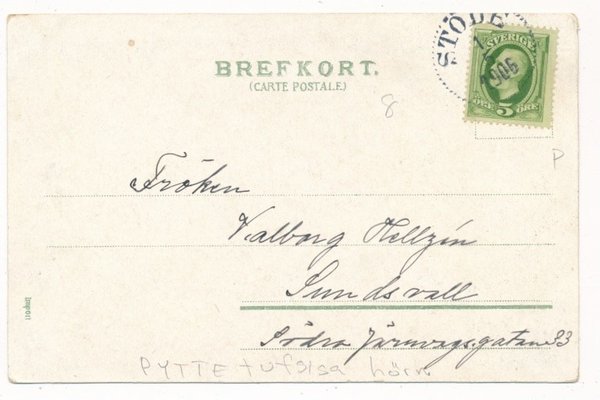 BREFKORT.
(CARTE POSTALE.)
STÖDE
1
1906
SVERIGE
ÖRE 5 ÖRE
8
P
Fröken
Valborg Hellzén
Sundsvall
Södra Järnvägsgatan 33
Import
PYTTE tufsiga hörn